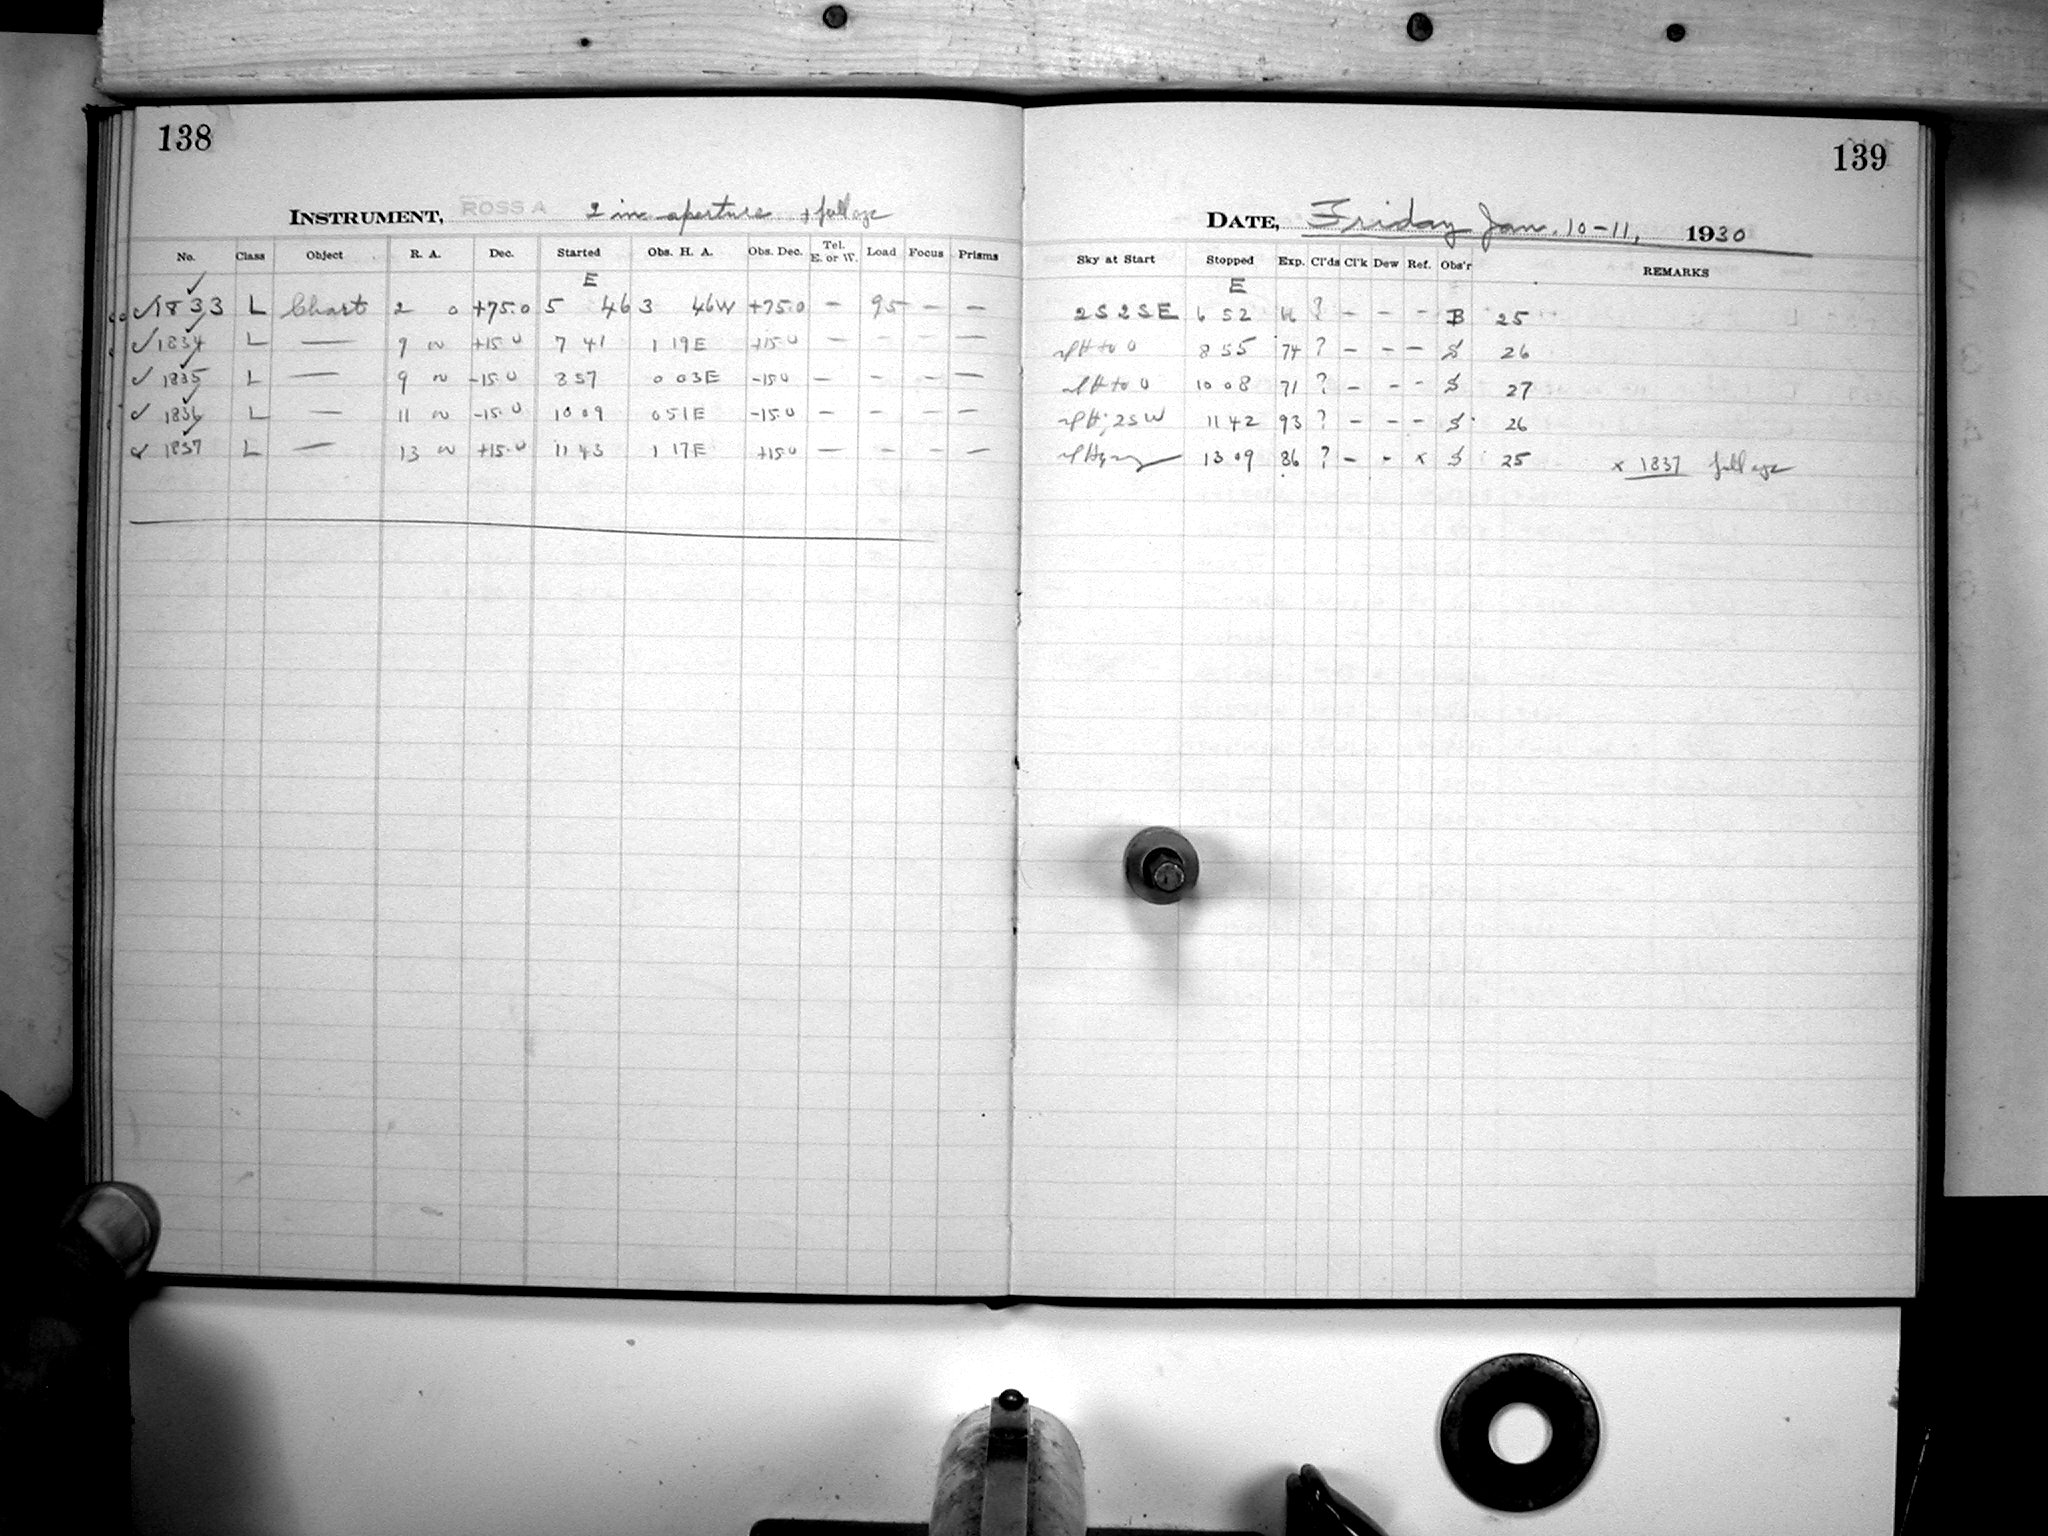 138
INSTRUMENT, ROSS A 2 in aperture + full age
No. Class Object R. A. Dec. Started Obs. H. A. Obs. Dec. Tel. E. or W. Load Focus Prisms
E
✓1833 L Chart 2 0 +75.0 5 46 3 46W +75.0 — 95 — —
✓1834 L — 9 ~ +15.0 7 41 1 19E +15.0 — — — —
✓1835 L — 9 ~ -15.0 8 57 0 03E -15.0 — — — —
✓1836 L — 11 ~ -15.0 10 09 0 51E -15.0 — — — —
✓1837 L — 13 ~ +15.0 11 43 1 17E +15.0 — — — —
139
DATE, Friday Jan. 10-11, 1930
Sky at Start Stopped Exp. Cl'ds Cl'k Dew Ref. Obs'r REMARKS
E
2S2SE 6 52 66 ? — — — B 25
to 0 8 55 74 ? — — — S 26
to 0 10 08 71 ? — — — S 27
2SW 11 42 93 ? — — — S 26
13 09 86 ? — — x S 25 x 1837 full age